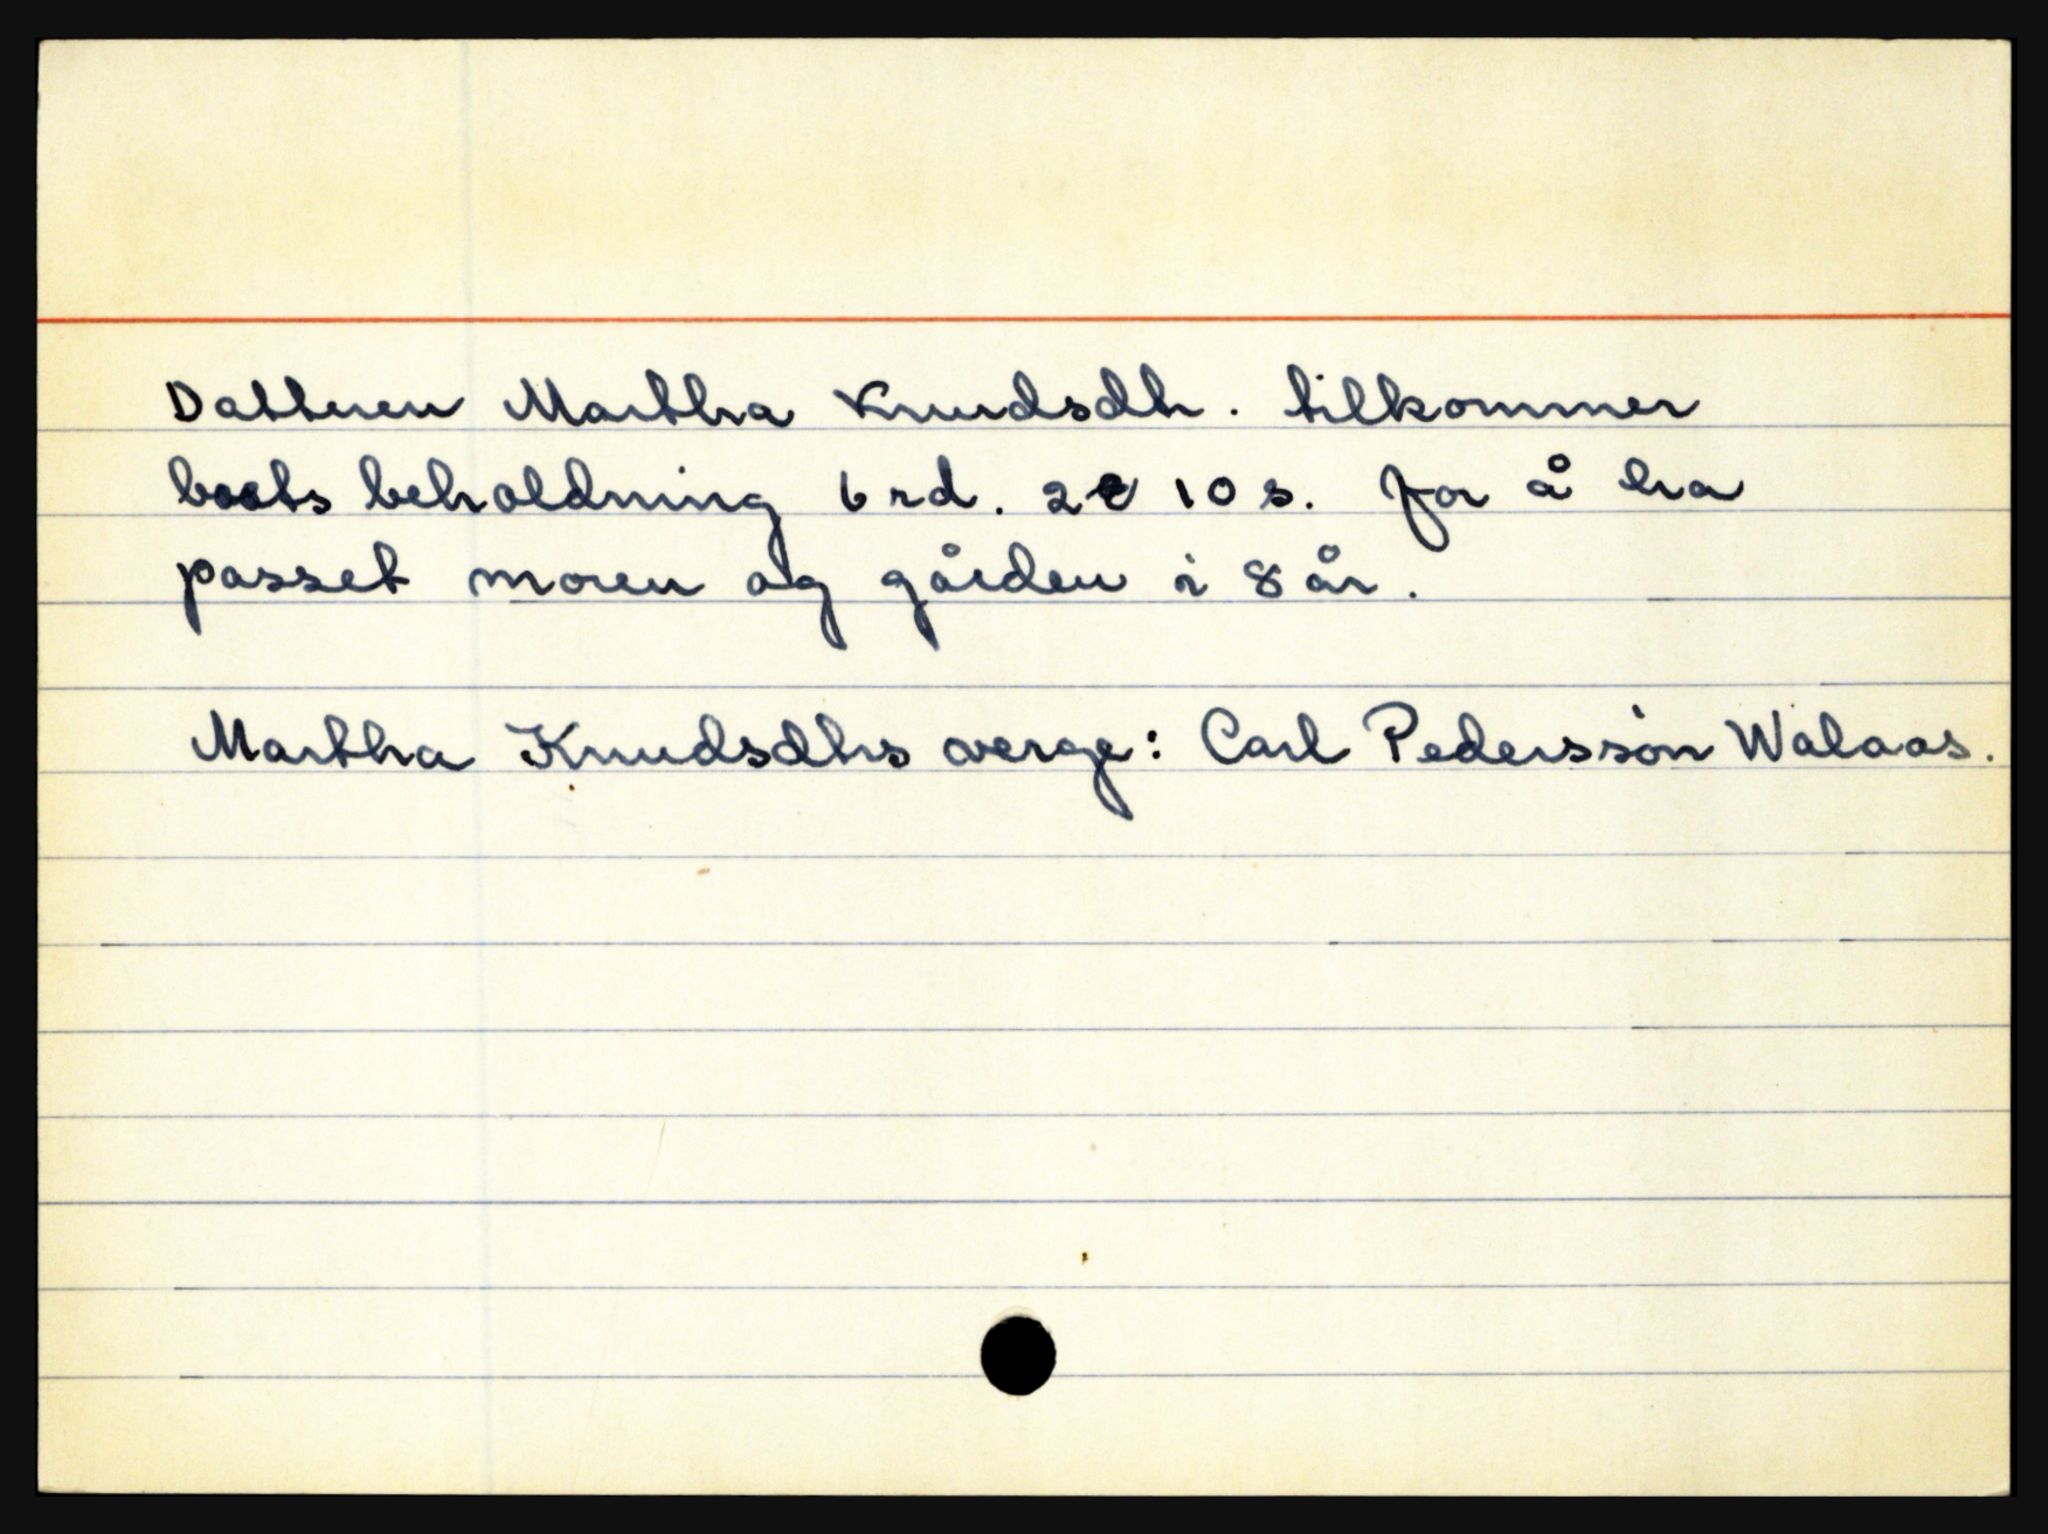 Datteren Martha Knudsdtr. tilkommer
boets beholdning 6 rd. 2 10 s. for å ha
passet moren og gården i 8 år.
Martha Knudsdtrs verge: Carl Pederssøn Walaas.